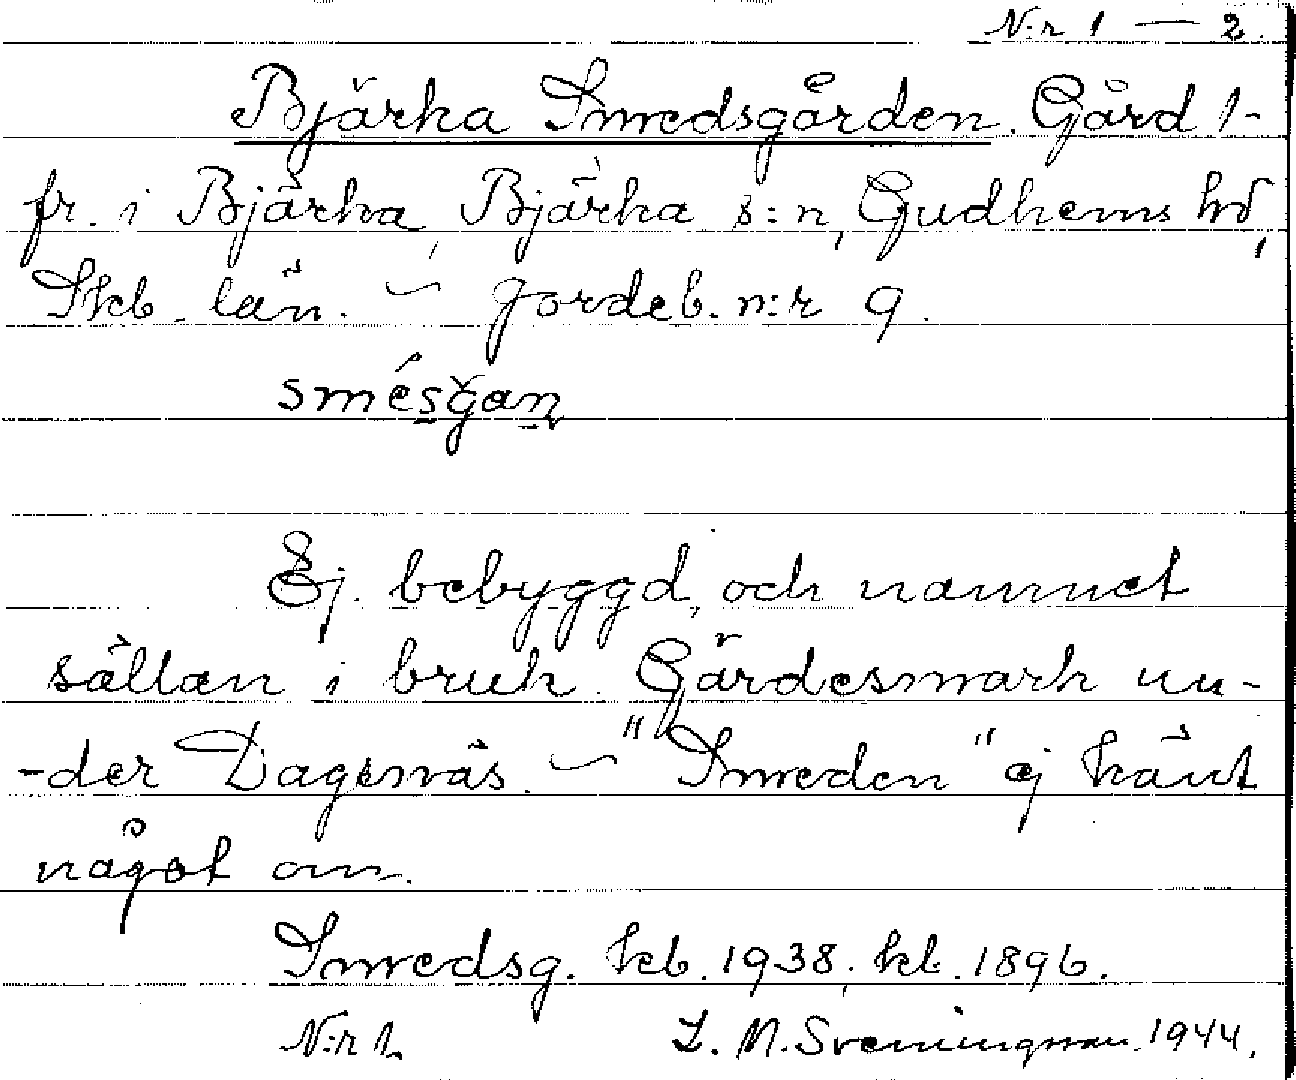 N:r 1 — 2.
Bjärka Smedsgården. Gård 1-
fr. i Bjärka, Bjärka s:n, Gudhems hd,
Skb. län. — Jordeb. n:r 9.
smésǧan
Ej bebyggd, och namnet
sällan i bruk. Gärdesmark un-
-der Dagsnäs. — "Smeden" ej känt
något om.
Smedsg. kb. 1938. kl. 1896.
N:r 1. L. N. Sveningsson. 1944.